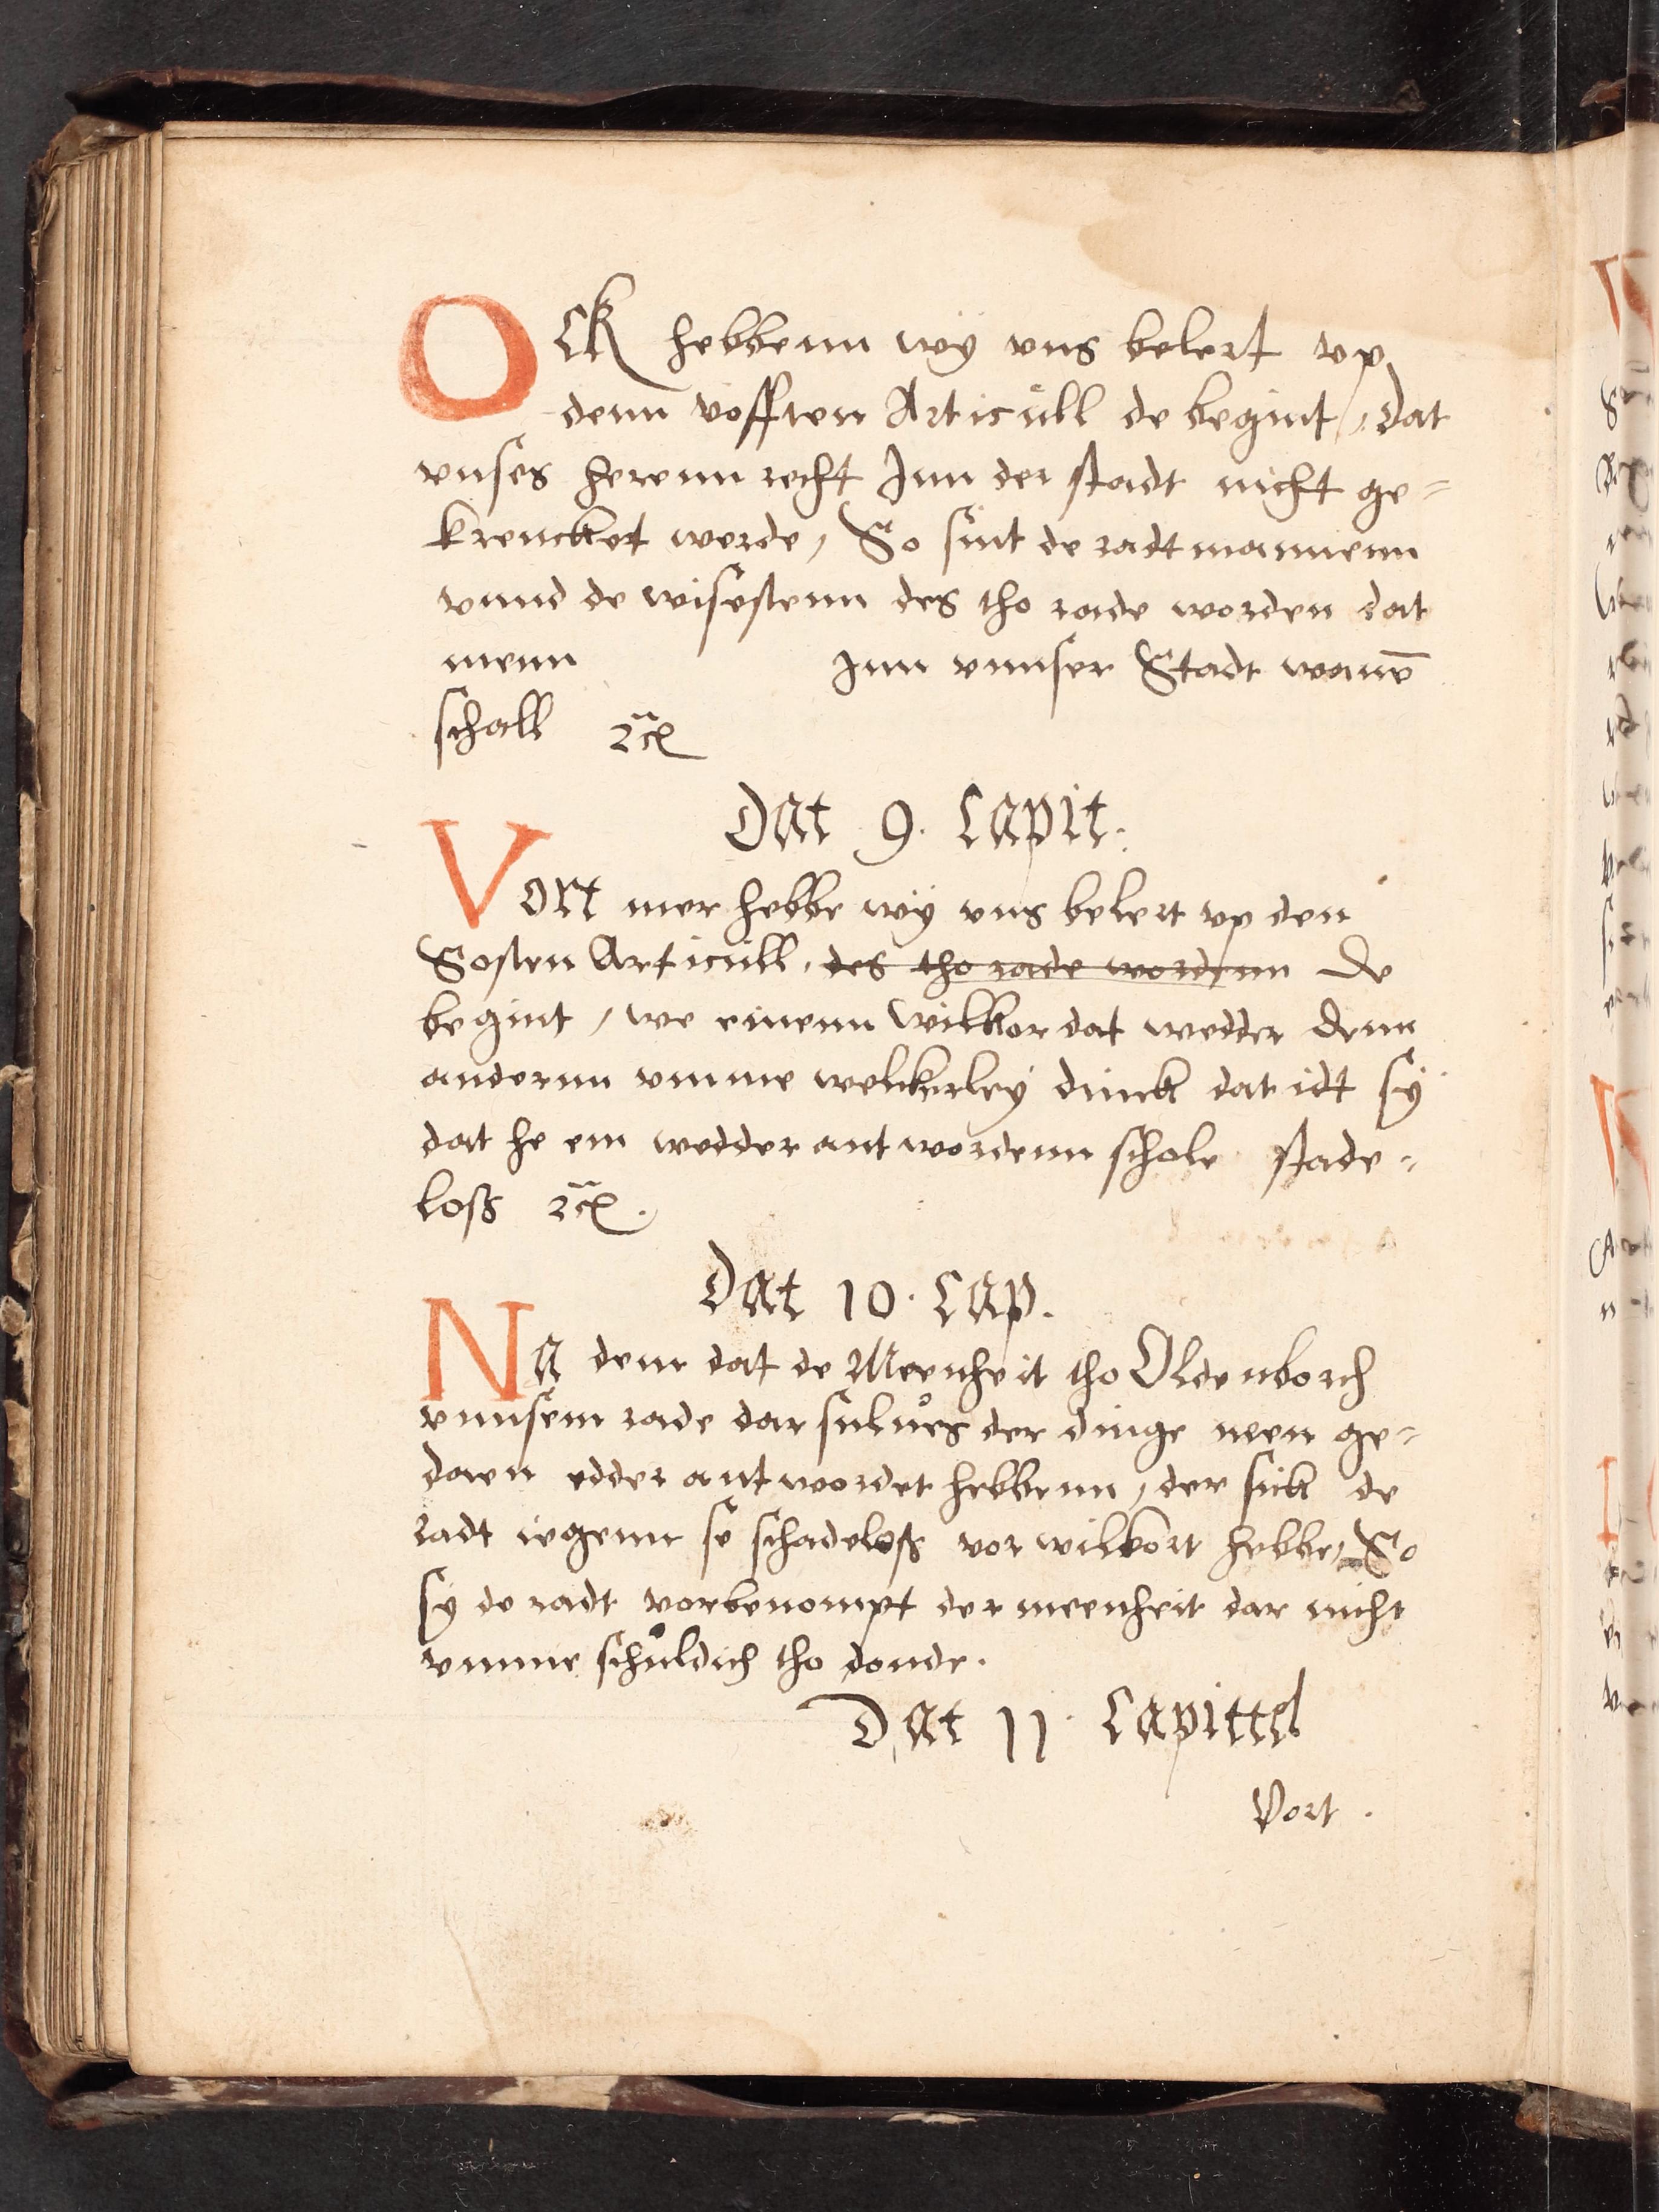 Ock hebbenn wÿ vns belert vp
denn vofften Articůll de begint, dat
vnses herenn recht Jnn der stadt nicht ge=
krencket werde, So sint de radtmannenn
vnnd de wisestenn des tho rade worden dat
menn Jnn vnnser Stadt wanē
schall ꝛc̈
Dat 9. Capit.
Vort mer hebbe wÿ vns belert vp den
Sosten Articůll, des tho rade wordenn de
begint, we einenn Wilkor dat wedder denn
andernn vmme welckerley dinck dat idt sÿ
dat he em wedder antwordenn schole stade=
loß ꝛc̈.
Dat 10. Cap.
Na dem dat de Meenheit tho Oldenborch
vnnsem rade dar sulues der dinge neen ge=
daen edder antwordet hebbenn, der sick de
radt iegenn se schadeloß vorwilkort hebbe, So
sÿ de radt vorbenompt der meenheit dar nicht
vmme schůldich tho donde.
Dat 11. Capittel
Vort.